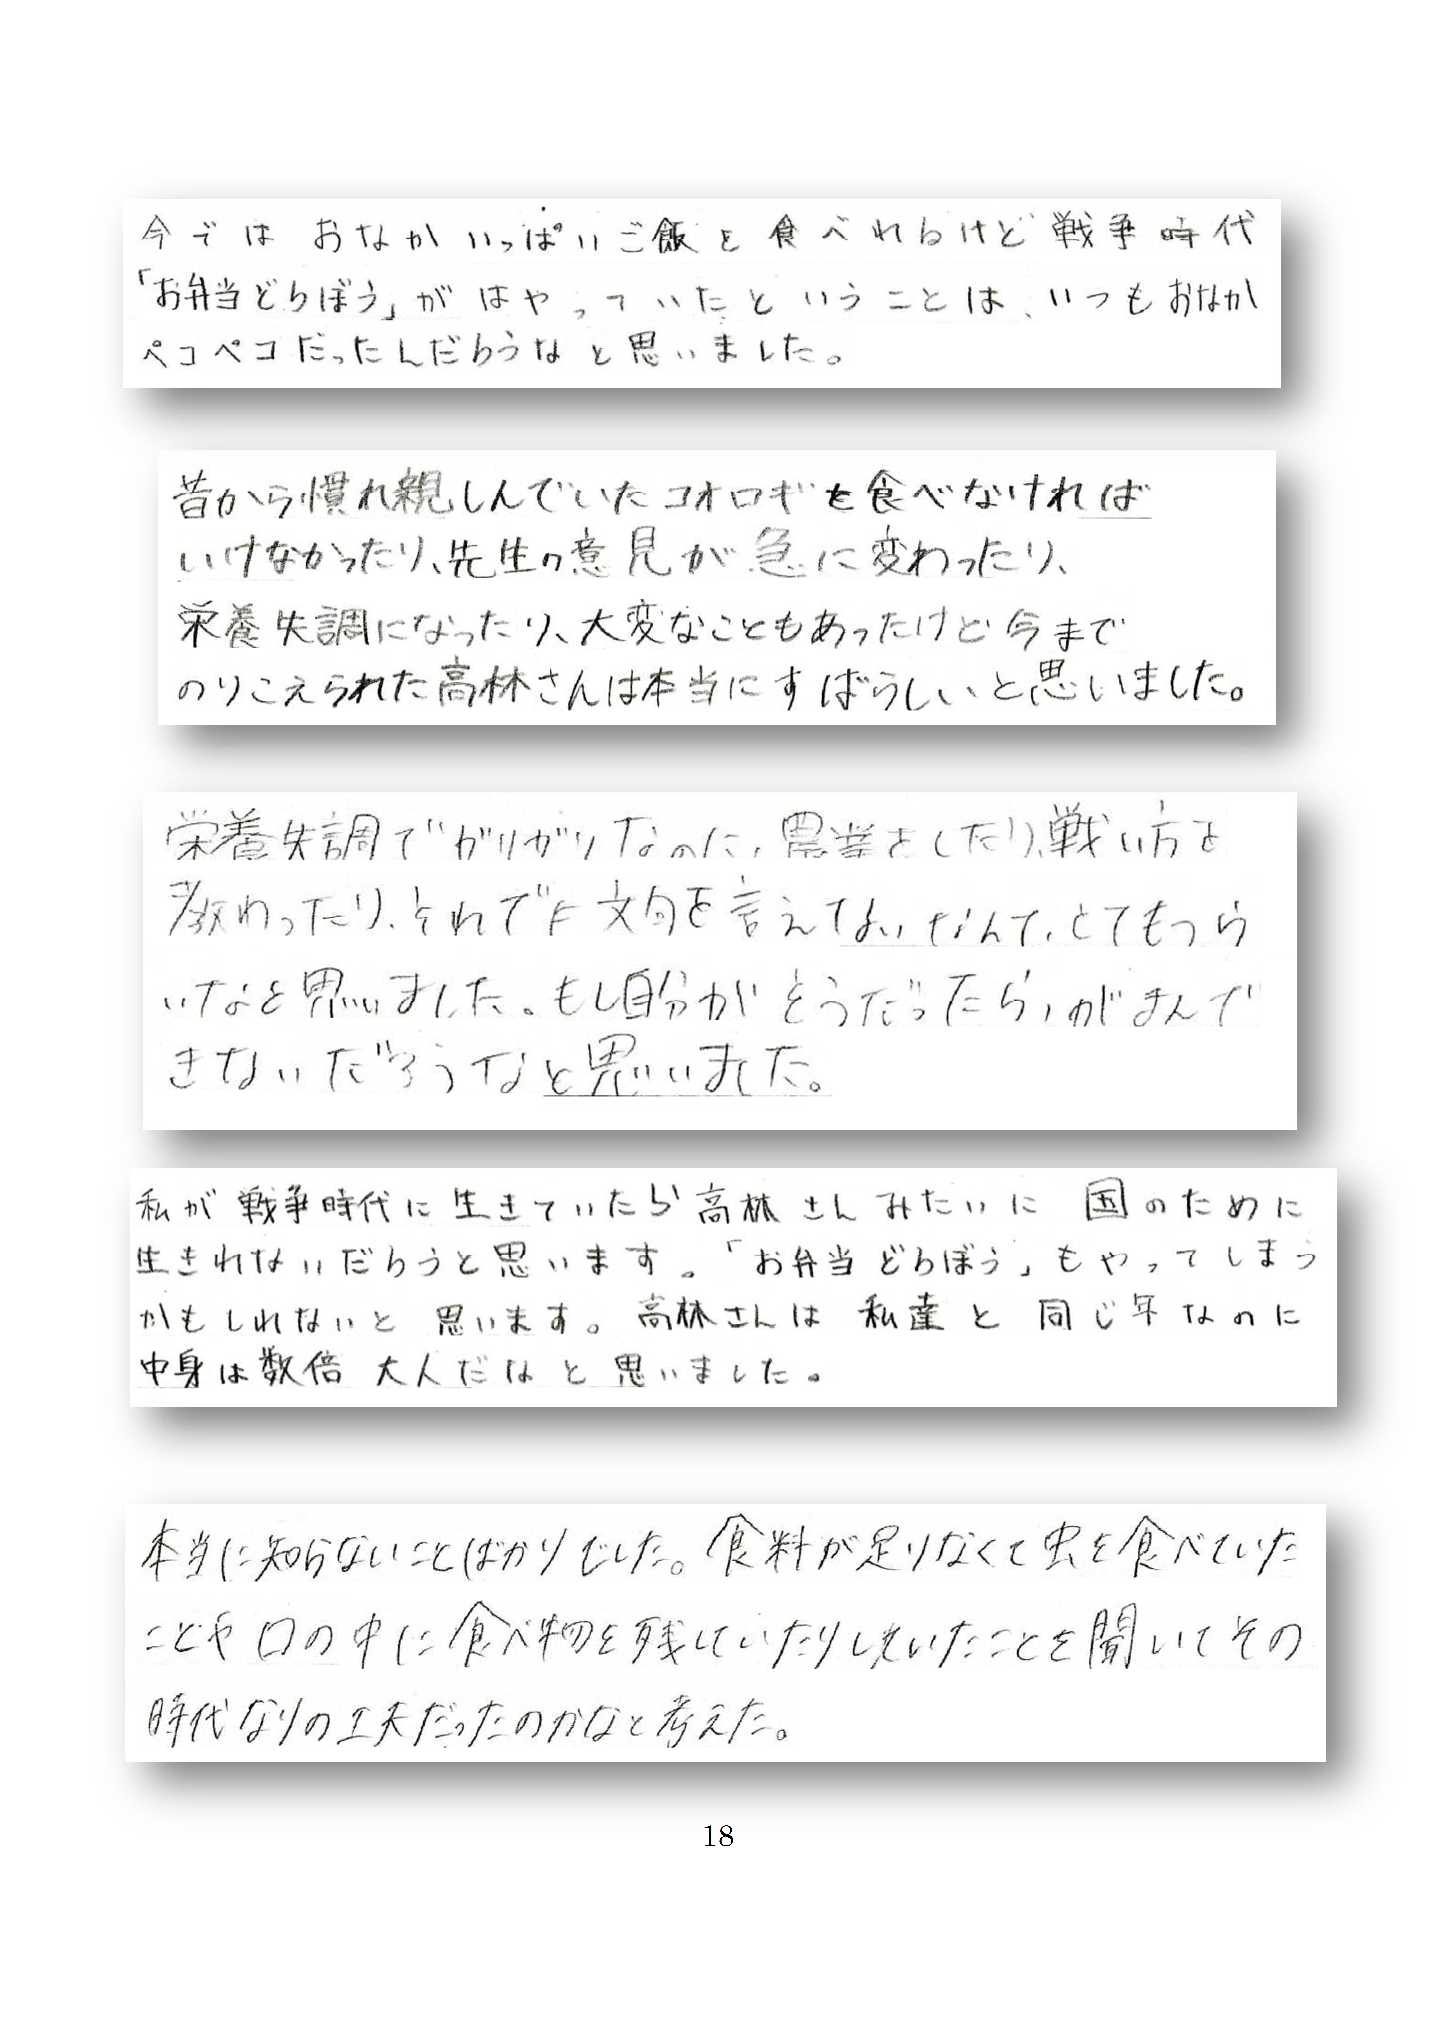 今ではおなかいっぱいご飯を食べれるけど戦争時代
「お弁当どろぼう」がはやっていたということは、いつもおなか
ペコペコだったんだろうなと思いました。
昔から慣れ親しんでいたコオロギを食べなければ
いけなかったり、先生の意見が急に変わったり、
栄養失調になったり、大変なこともあったけど今まで
のりこえられた高林さんは本当にすばらしいと思いました。
栄養失調でガリガリなのに、農業をしたり、戦い方を
教わったり、それでも文句を言えてないなんて、とてもつら
いなと思いました。もし自分がそうだったら、がまんで
きないだろうなと思いました。
私が戦争時代に生きていたら高林さんみたいに国のために
生きれないだろうと思います。「お弁当どろぼう」もやってしまう
かもしれないと思います。高林さんは私達と同じ年なのに
中身は数倍大人だなと思いました。
本当に知らないことばかりでした。食料が足りなくて虫を食べていた
ことや口の中に食べ物を残していたりしていたことを聞いてその
時代なりの工夫だったのかなと考えた。
18